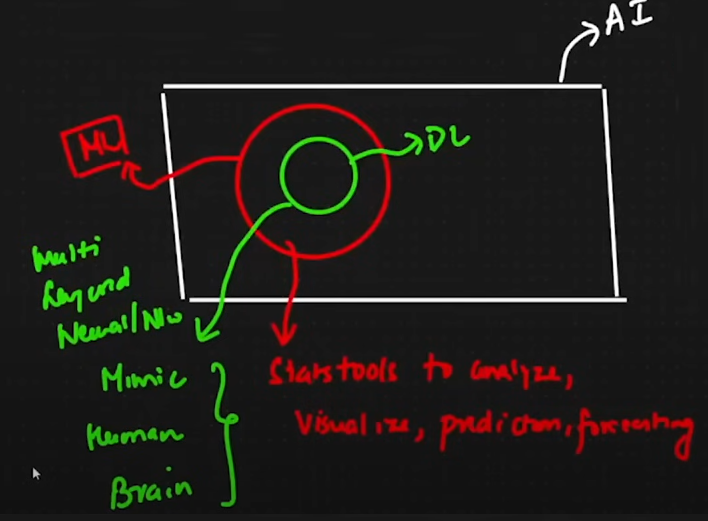 AI
ML
DL
Multi
Layered
Neural/NW
Mimic
Human
Brain
Stats tools to analyze,
Visualize, prediction, forecasting